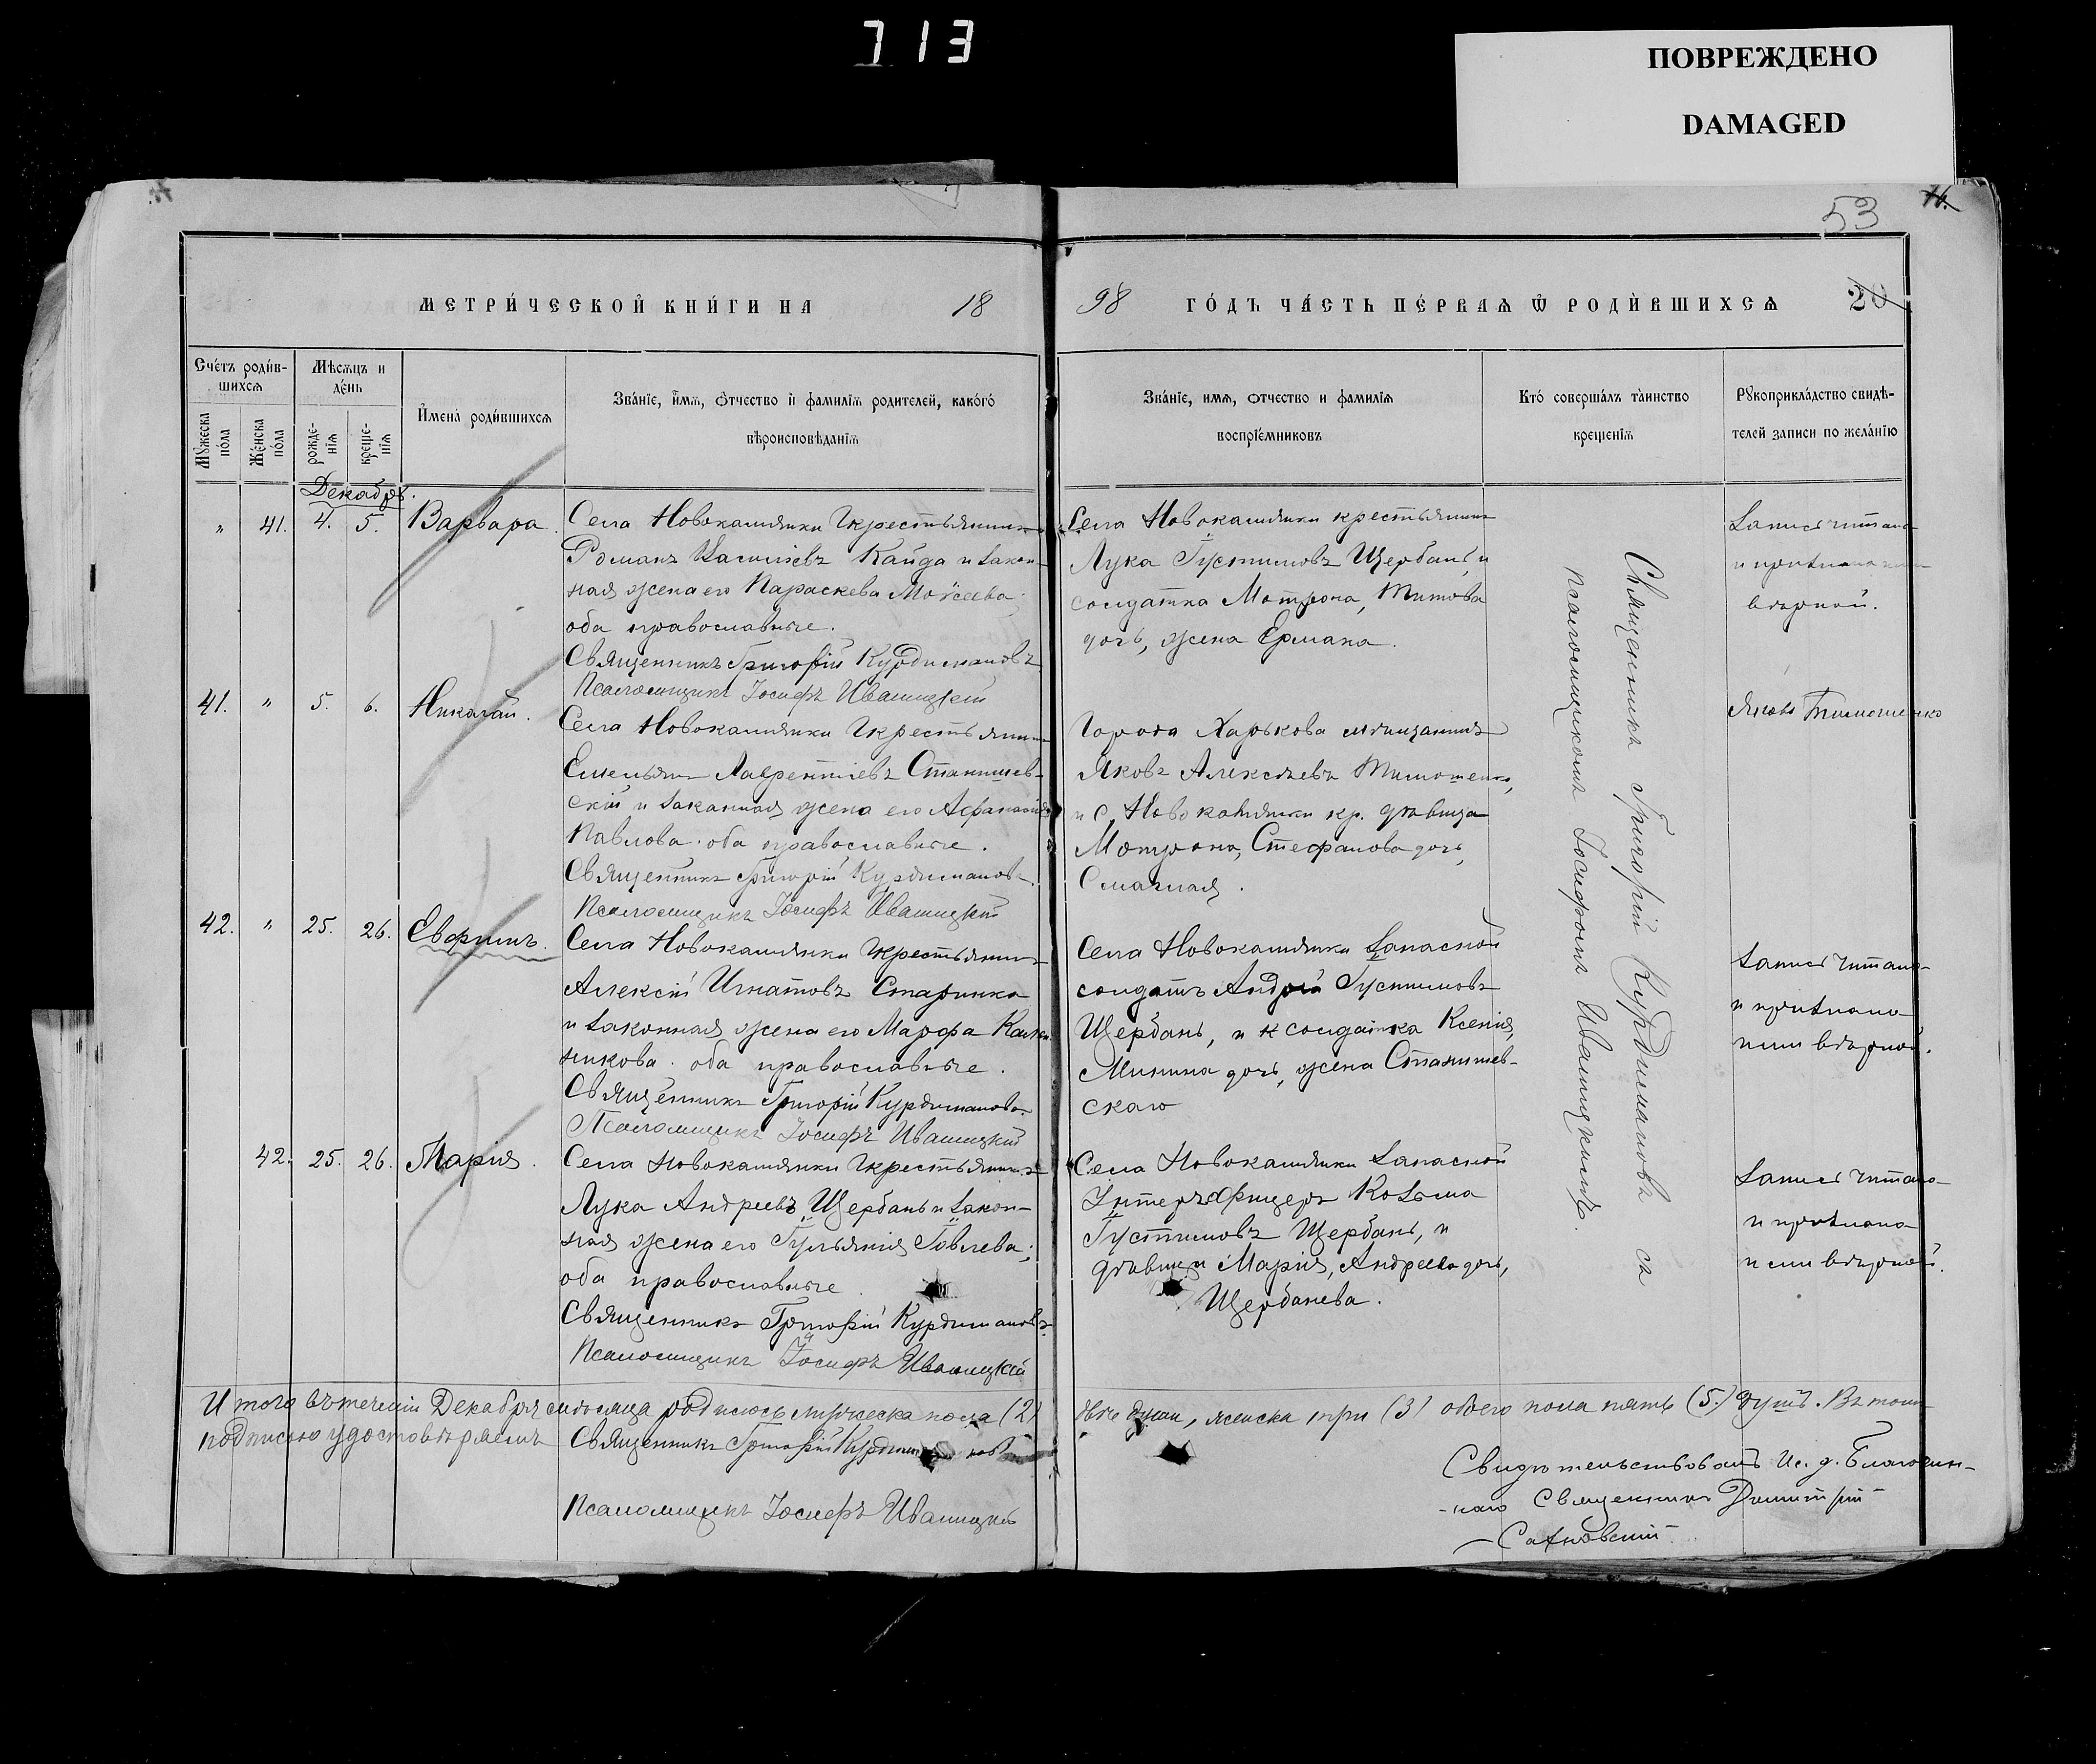 713
ПОВРЕЖДЕНО
DAMAGED
53
МЕТРИ́ЧЕСКОЙ КНИ́ГИ НА 18
98 ГО́ДЪ ЧА́СТЬ ПЕ́РВАѦ Ѿ РОДИ́ВШИХСѦ 20
Сче́тъ роди́в-
шихсѧ
Мѣ́сѧцъ и
де́нь
И҆мена̀ роди́вшихсѧ
Зва́нїе, и҆́мѧ, ѻ҆́тчество и҆ фамилїѧ родителей, како́гѡ
вѣроисповѣданїѧ
Мꙋ́жеска
по́ла
Же́нска
по́ла
рожде-
нїѧ
креще-
нїѧ
Зва́нїе, имѧ, ѻтчество и фамилїѧ
воспрїе́мниковъ
Кто̀ соверша́лъ та̀инство
крещенїѧ
Рꙋкоприкла́дство свидѣ-
телей записи по жела́нїю
Декабрь.
" 41. 4. 5. Варвара.
Села Новокамянки крестьянинъ
Романъ Василіевъ Кайда и закон-
ная жена его Параскева Моѵсеева:
оба православные.
Священникъ Григорій Курдимановъ
Псаломщикъ Іосифъ Ивашицкій
Села Новокамянки крестьянинъ
Лука Іустиновъ Щербань, и
солдатка Мотрона, Титова
дочь, жена Ермака.
Запись читана
и признана
вѣрной.
41. " 5. 6. Николай.
Села Новокамянки крестьянинъ
Емельянъ Лаврентіевъ Станишев-
скій и законная жена его Афанасія
Павлова. оба православные.
Священникъ Григорій Курдимановъ.
Псаломщикъ Іосифъ Ивашицкій
Города Харькова мѣщанинъ
Яковъ Алексѣевъ Тимошенко,
и с. Новокамянки кр. дѣвица
Мотрона, Стефанова дочь,
Смачная.
Яковъ Тимошенко
42. " 25. 26. Евфимъ.
Села Новокамянки крестьянинъ
Алексій Игнатовъ Старинко
и законная жена его Марфа
оба православные.
Священникъ Григорій Курдимановъ.
Псаломщикъ Іосифъ Ивашицкій
Села Новокамянки Запасной
солдатъ Андрей Іустиновъ
Щербань, и солдатка Ксенія,
Минина дочь, жена Станишев-
скаго
Запись читана
и признана
ими вѣрной.
42. 25. 26. Марія.
Села Новокамянки крестьянинъ
Лука Андреевъ Щербань и закон-
ная жена его Іуліанія Іовлева;
оба православные.
Священникъ Григорій Курдимановъ
Псаломщикъ Іосифъ Ивашицкій
Села Новокамянки Запасной
Унтеръ-Офицеръ Козьма
Іустиновъ Щербань, и
дѣвица Марія, Андреева дочь,
Щербанева.
Запись читана
и признана
ими вѣрной.
Священникъ Григорій Курдимановъ съ
псаломщикомъ Іосифомъ Ивашицкимъ.
Итого въ теченіи Декабря мѣсяца родилось мужеска пола (2)
двѣ души, женска три (3) обоего пола пять (5.) душъ. Въ томъ
подписью удостовѣряемъ Священникъ Григорій Курдимановъ
Псаломщикъ Іосифъ Ивашицкій
Свидѣтельствовалъ Ис. д. Благочин-
-наго Священникъ Димитрій